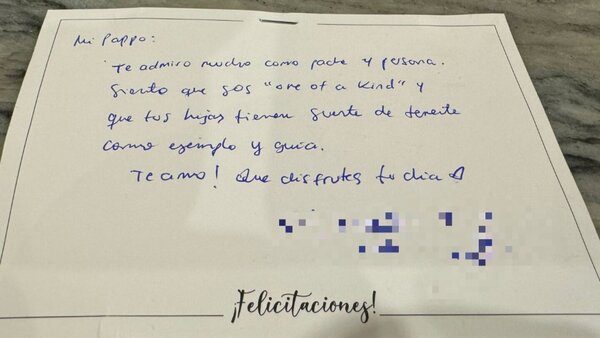 Mi Pappo:
Te admiro mucho como padre y persona.
Siento que sos "one of a kind" y
que tus hijas tienen suerte de tenerte
como ejemplo y guia.
Te amo! Que disfrutes tu dia
¡Felicitaciones!